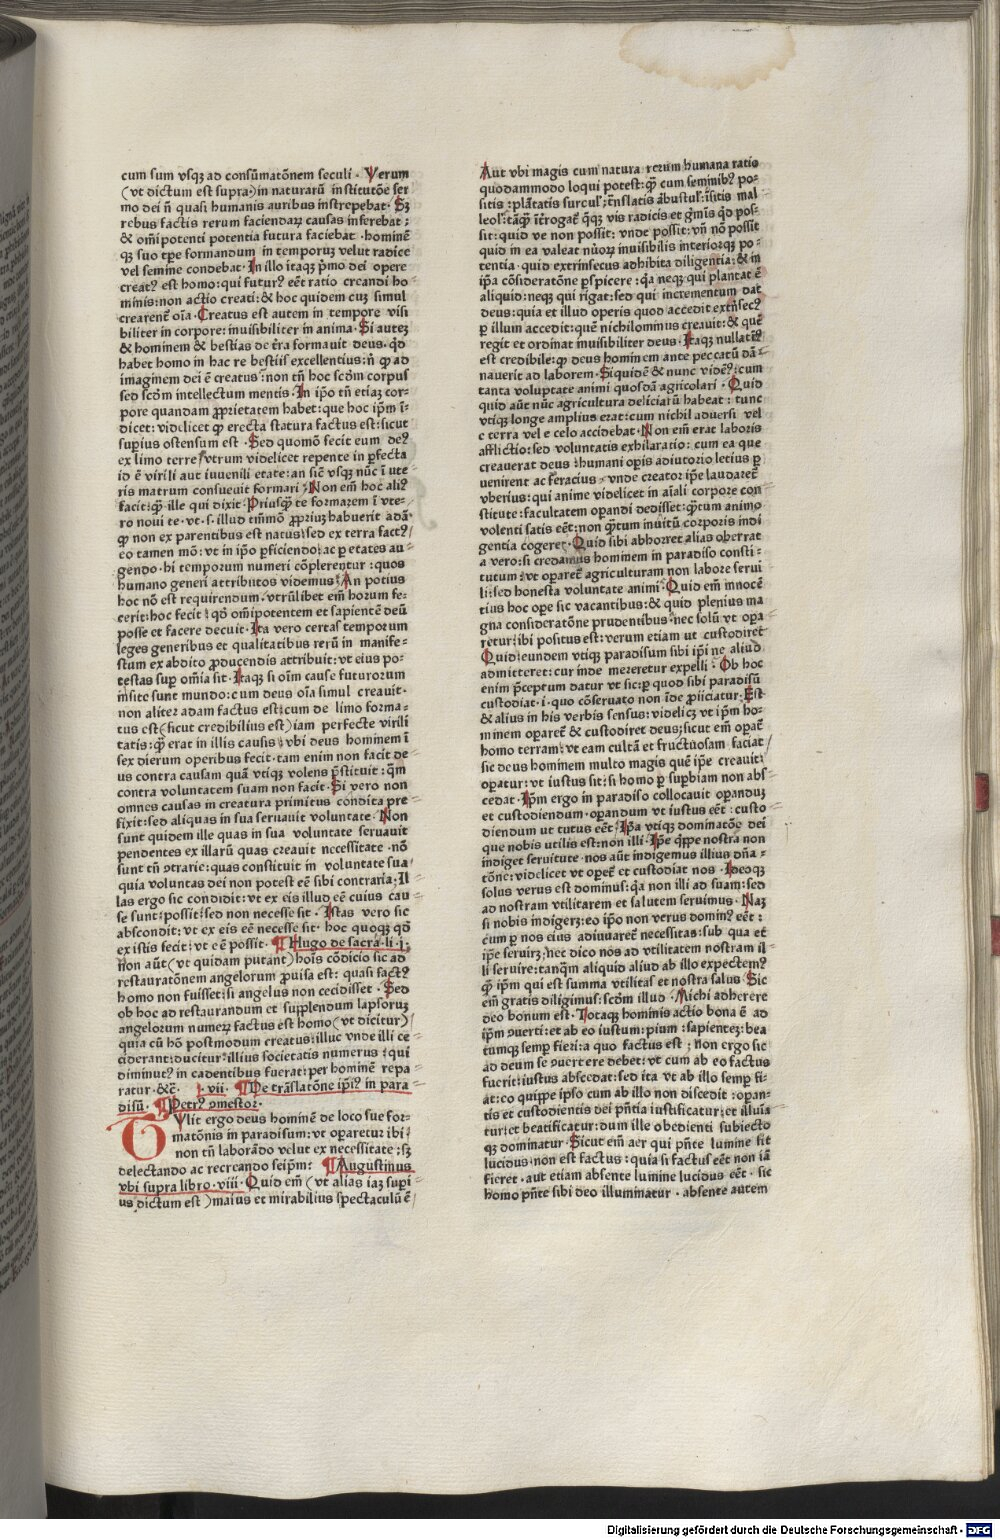 cum sum vsqꝫ ad consūmatōnem seculi · Verum
(vt dictum est supra·) in naturarū institutōne ser
mo dei n̄ quasi humanis auribus instrepebat · Sꝫ
rebus factis rerum faciendaꝝ causas inserebat :
& om̄ipotenti potentia futura faciebat · hominē
qꝫ suo tp̄e formandum in temporuꝫ velut radice
vel semine condebat · In illo itaqꝫ p̄mo dei opere
creatꝰ est homo: qui futurꝰ eēt ratio creandi ho-
minis: non actio creati: & hoc quidem cuꝫ simul
crearent̄ oīa · Creatus est autem in tempore visi
biliter in corpore: inuisibiliter in anima · Si auteꝫ
& hominem & bestias de t̄ra formauit deus · qd̄
habet homo in hac re bestijs excellentius: n̄ ꝙ ad
imaginem dei ē creatus: non tn̄ hoc scd̄m corpus
sed scd̄m intellectum mentis · In ip̄o tn̄ etiaꝫ cor-
pore quandam ꝓprietatem habet: que hoc ip̄m ī-
dicet: videlicet ꝙ erecta statura factus est: sicut
suꝑius ostensum est · Sed quomō fecit eum deꝰ
ex limo terre? vtrum videlicet repente in ꝑfecta
id ē virili aut iuuenili etate: an sic̄ vsqꝫ nūc ī vte
ris matrum consueuit formari? Non em̄ hoc aliꝰ
facit: ꝙ̄ ille qui dixit · Priusꝙ̄ te formarem ī vte-
ro noui te · vt · s · illud tm̄mō ꝓpriuꝫ habuerit adā·
ꝙ non ex parentibus est natus: sed ex terra factꝰ/
eo tamen mō: vt in ip̄o ꝑficiendo: ac ꝑ etates au-
gendo · hi temporum numeri cōplerentur: quos
humano generi attributos videmus? An potius
hoc nō est requirendum · vtrūlibet em̄ horum fe-
cerit: hoc fecit: qd̄ om̄ipotentem et sapientē deū
posse et facere decuit · Ita vero certas temporum
leges generibus et qualitatibus rerū in manife-
stum ex abdito ꝓducendis attribuit: vt eius po-
testas suꝑ om̄ia sit · Itaqꝫ si oīm cause futurorum
insite sunt mundo: cum deus oīa simul creauit·
non aliter adam factus est: cum de limo forma-
tus est (sicut credibilius est) iam perfecte virili
tatis: ꝙ̄ erat in illis causis: vbi deus hominem ī
sex dierum operibus fecit · tam enim non facit de
us contra causam quā vtiqꝫ volens p̄stituit: q̄m
contra voluntatem suam non facit · Si vero non
omnes causas in creatura primitus condita pre
fixit: sed aliquas in sua seruauit voluntate · Non
sunt quidem ille quas in sua voluntate seruauit
pendentes ex illarū quas creauit necessitate · nō
sunt tn̄ ꝯtrarie: quas constituit in voluntate sua/
quia voluntas dei non potest eē sibi contraria; Il
las ergo sic condidit: vt ex eis illud eē cuius cau
se sunt: possit: sed non necesse sit · Istas vero sic
abscondit: vt ex eis eē necesse sit · hoc quoqꝫ qd̄
ex istis fecit: vt eē possit · ¶ Hugo de sacra · li · j·
Non aūt (vt quidam putant) hoīs cōdicio sic ad
restauratōnem angelorum ꝓuisa est: quasi factꝰ
homo non fuisset: si angelus non cecidisset · Sed
ob hoc ad restaurandum et supplendum lapsoruꝫ
angelorum numeꝝ factus est homo (vt dicitur)
quia cū hō postmodum creatus: illuc vnde illi ce
ciderant: ducitur: illius societatis numerus: qui
diminutꝰ in cadentibus fuerat: per hominē repa
ratur · &c̄ · l· vii· ¶ De trāslatōne ip̄iꝰ in para
disū · ¶ Petrꝰ ꝯmestor ·
TVlit ergo deus hominē de loco sue for-
matōnis in paradisum: vt oparetur ibi/
non tn̄ laborādo velut ex necessitate: sꝫ
delectando ac recreando seip̄m: ¶ Augustinus
vbi supra libro · viii · Quid em̄ (vt alias iaꝫ suꝑi
us dictum est) maius et mirabilius spectaculū ē
Aut vbi magis cum natura rerum humana ratio
quodammodo loqui potest: ꝙ̄ cum seminibꝰ po-
sitis: plātatis surculꝭ: trāslatis ābustulꝭ: īsitis mal
leolꝭ: tāꝙ̄ īt̄rogat̄ q̄qꝫ vis radicis et gm̄inis qd̄ pos-
sit: quid ve non possit: vnde possit: vn̄ nō possit
quid in ea valeat nūoꝝ inuisibilis interiorqꝫ po-
tentia · quid extrinsecus adhibita diligentia: & in
ip̄a cōsideratōne ꝑspicere: q̄a neqꝫ qui plantat ē
aliquid: neqꝫ qui rigat: sed qui incrementum dat
deus: quia et illud operis quod accedit extn̄secꝰ
ꝑ illum accedit: quē nichilominus creauit: & quē
regit et ordinat inuisibiliter deus · Itaqꝫ nullatiꝰ
est credibile: ꝙ deus hominem ante peccatū dā-
nauerit ad laborem · Siquidē & nunc videmꝰ: cum
tanta voluptate animi quosdā agricolari · Quid
quid aūt nūc agricultura deliciaꝝ habeat: tunc
vtiqꝫ longe amplius erat: cum nichil aduersi vel
e terra vel e celo accidebat · Non em̄ erat laboris
afflictio: sed voluntatis exhilaratio: cum ea que
creauerat deus: humani opis adiutorio letius ꝑ
venirent ac feracius · vnde creator ip̄e laudaret̄
vberius: qui anime videlicet in aīali corpore con
stitute: facultatem operandi dedisset: ꝙ̄tum animo
volenti satis eēt: non ꝙ̄tum inuitū corporis indi
gentia cogeret · Quid sibi abhorret alias oberrat
a vero: si credamus hominem in paradiso consti-
tutum: vt oparet̄ agriculturam non labore serui
li: sed honesta voluntate animi · Quid em̄ innocē
tius hoc ope sic vacantibus: & quid plenius ma
gna consideratōne prudentibus · nec solū vt opa
retur: ibi positus est: verum etiam vt custodiret
Quid: eundem vtiqꝫ paradisum sibi ip̄i ne aliud
admitteret: cur inde mereretur expelli · Ob hoc
enim p̄ceptum datur vt sic: ꝑ quod sibi paradisū
custodiat · i · quo cōseruato non īde ꝓijciatur · Est
& alius in his verbis sensus: videlicꝫ vt ip̄m ho-
minem oparet̄ & custodiret deus: sicut em̄ opat̄
homo terram: vt eam cultā et fructuosam faciat/
sic deus hominem multo magis quē ip̄e creauit/
opatur: vt iustus sit: si homo ꝑ suꝑbiam non abs/
cedat · Ip̄m ergo in paradiso collocauit operanduꝫ
et custodiendum · operandum vt iustus eēt: custo
diendum vt tutus eēt · Ip̄a vtiqꝫ dominatōe dei
que nobis vtilis est: non illi · Ip̄e q̄ppe nostra non
indiget seruitute · nos aūt indigemus illius dn̄a-
tōne: videlicet vt opet̄ et custodiat nos · Ideoqꝫ
solus verus est dominus: q̄a non illi ad suam: sed
ad nostram vtilitatem et salutem seruimus · Naꝫ
si nobis indigeꝫ: eo ip̄o non verus dominꝰ eēt:
cum ꝑ nos eius adiuuaret̄ necessitas: sub qua et
ip̄e seruiꝫ: nec dico nos ad vtilitatem nostram il-
li seruire: tanꝙ̄m aliquid aliud ab illo expectemꝰ
ꝙ̄ ip̄m qui est summa vtilitas et nostra salus · Sic
em̄ gratis diligimus: scd̄m illud · Michi adherere
deo bonum est · Totaqꝫ hominis actio bona ē ad
ip̄m ꝯuerti: et ab eo iustum: pium: sapienteꝫ: bea
tumqꝫ semꝑ fieri: a quo factus est; non ergo sic
ad deum se ꝯuertere debet: vt cum ab eo factus
fuerit: iustus abscedat: sed ita vt ab illo semꝑ fi-
at: eo quippe ipso cum ab illo non discedit: operan-
tis et custodientis dei pn̄tia iustificatur: et illuīa
tur: et beatificatur: dum ille obedienti subiecto
qꝫ dominatur · Sicut em̄ aer qui pn̄te lumine fit
lucidus · non est factus: quia si factus eēt non iā
fieret · aut etiam absente lumine lucidus eēt · sic
homo pn̄te sibi deo illuminatur · absente autem
Digitalisierung gefördert durch die Deutsche Forschungsgemeinschaft - DFG